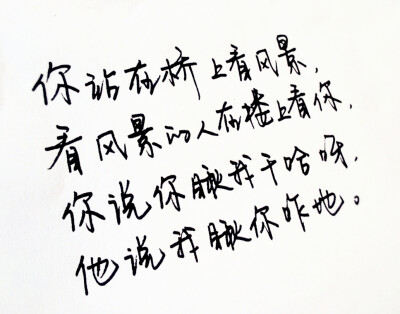 你站在桥上看风景,
看风景的人在楼上看你,
你说你瞅我干啥呀,
他说我瞅你咋地。